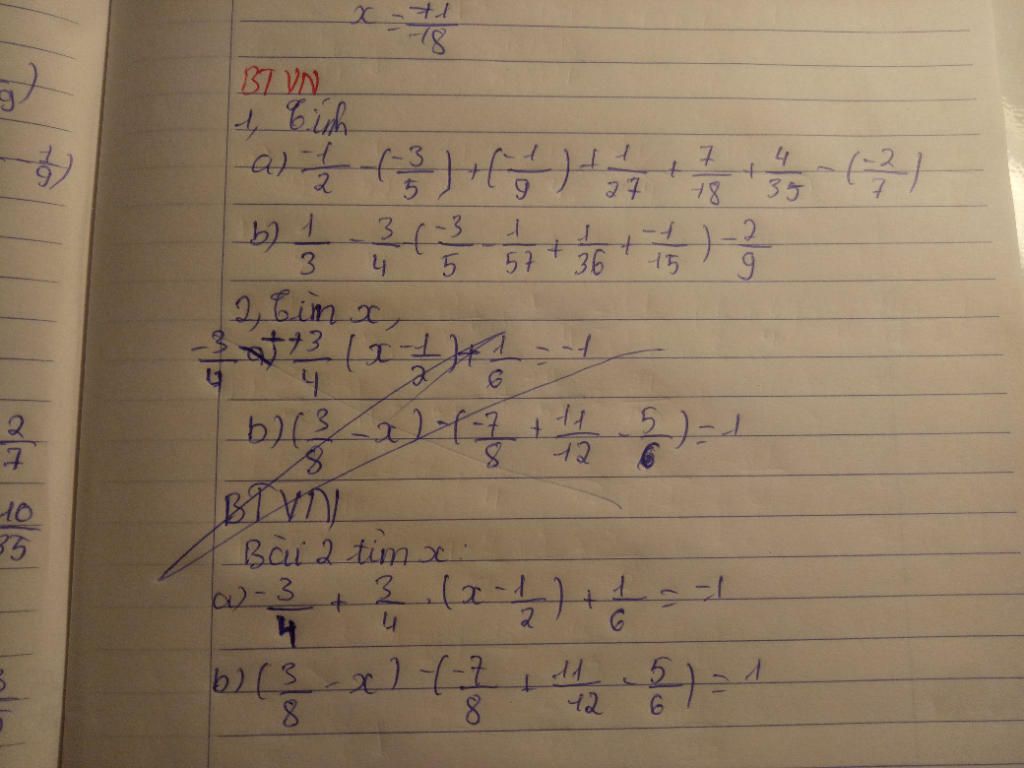 x = -71/18
BTVN
1, Tính
a) -1/2 - (-3/5) + (-1/9) + 1/27 + 7/18 + 4/35 - (-2/7)
b) 1/3 - 3/4 (-3/5 - 1/57 + 1/36 + -1/15) - 2/9
2, Tìm x,
-3/4 + 3/4 (x - 1/2) + 1/6 = -1
b) (3/8 - x) - (-7/8 + 11/12 - 5/6) = 1
BTVN
Bài 2 tìm x.
a) -3/4 + 3/4 . (x - 1/2) + 1/6 = -1
b) (3/8 - x) - (-7/8 + 11/12 - 5/6) = 1
9)
-1/9)
2/7
10/35